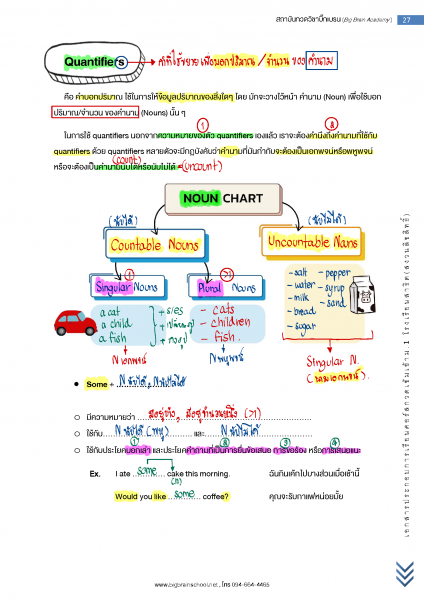 สถาบันกวดวิชาบิ๊กเบรน (Big Brain Academy) 27
Quantifiers → คำที่ใช้ขยาย เพื่อบอกปริมาณ / จำนวน ของ คำนาม
คือ คำบอกปริมาณ ใช้ในการให้ข้อมูลปริมาณของสิ่งใดๆ โดย มักจะวางไว้หน้า คำนาม (Noun) เพื่อใช้บอก
ปริมาณ/จำนวน ของคำนาม (Nouns) นั้น ๆ
① ②
ในการใช้ quantifiers นอกจากความหมายของตัว quantifiers เองแล้ว เราจะต้องคำนึงถึงคำนามที่ใช้กับ
quantifiers ด้วย quantifiers หลายตัวจะมีกฎบังคับว่าคำนามที่มันกำกับจะต้องเป็นเอกพจน์หรือพหูพจน์
(count)
หรือจะต้องเป็นคำนามนับได้หรือนับไม่ได้ (uncount)
NOUN CHART
(นับได้) (นับไม่ได้)
Countable Nouns Uncountable Nouns
① (>1)
Singular Nouns Plural Nouns
a cat
a child
a fish
+ s/es
+ เปลี่ยนรูป
+ คงรูป
- cats
- children
- fish
- salt
- water
- milk
- bread
- sugar
- pepper
- syrup
- sand
N เอกพจน์ N พหูพจน์
Singular N.
(นามเอกพจน์).
• Some + N นับได้, N นับไม่ได้
○ มีความหมายว่า มีอยู่บ้าง, มีอยู่จำนวนหนึ่ง (>1)
○ ใช้กับ N นับได้ (พหู) และ N นับไม่ได้
① ② ③ ④
○ ใช้กับประโยคบอกเล่า และประโยคคำถามที่เป็นการยื่นข้อเสนอ การขอร้อง หรือการเสนอแนะ
Ex. I ate some cake this morning. ฉันกินเค้กไปบางส่วนเมื่อเช้านี้
(n)
Would you like some coffee? คุณจะรับกาแฟหน่อยมั้ย
www.bigbrainschool.net., โทร 094-664-4465